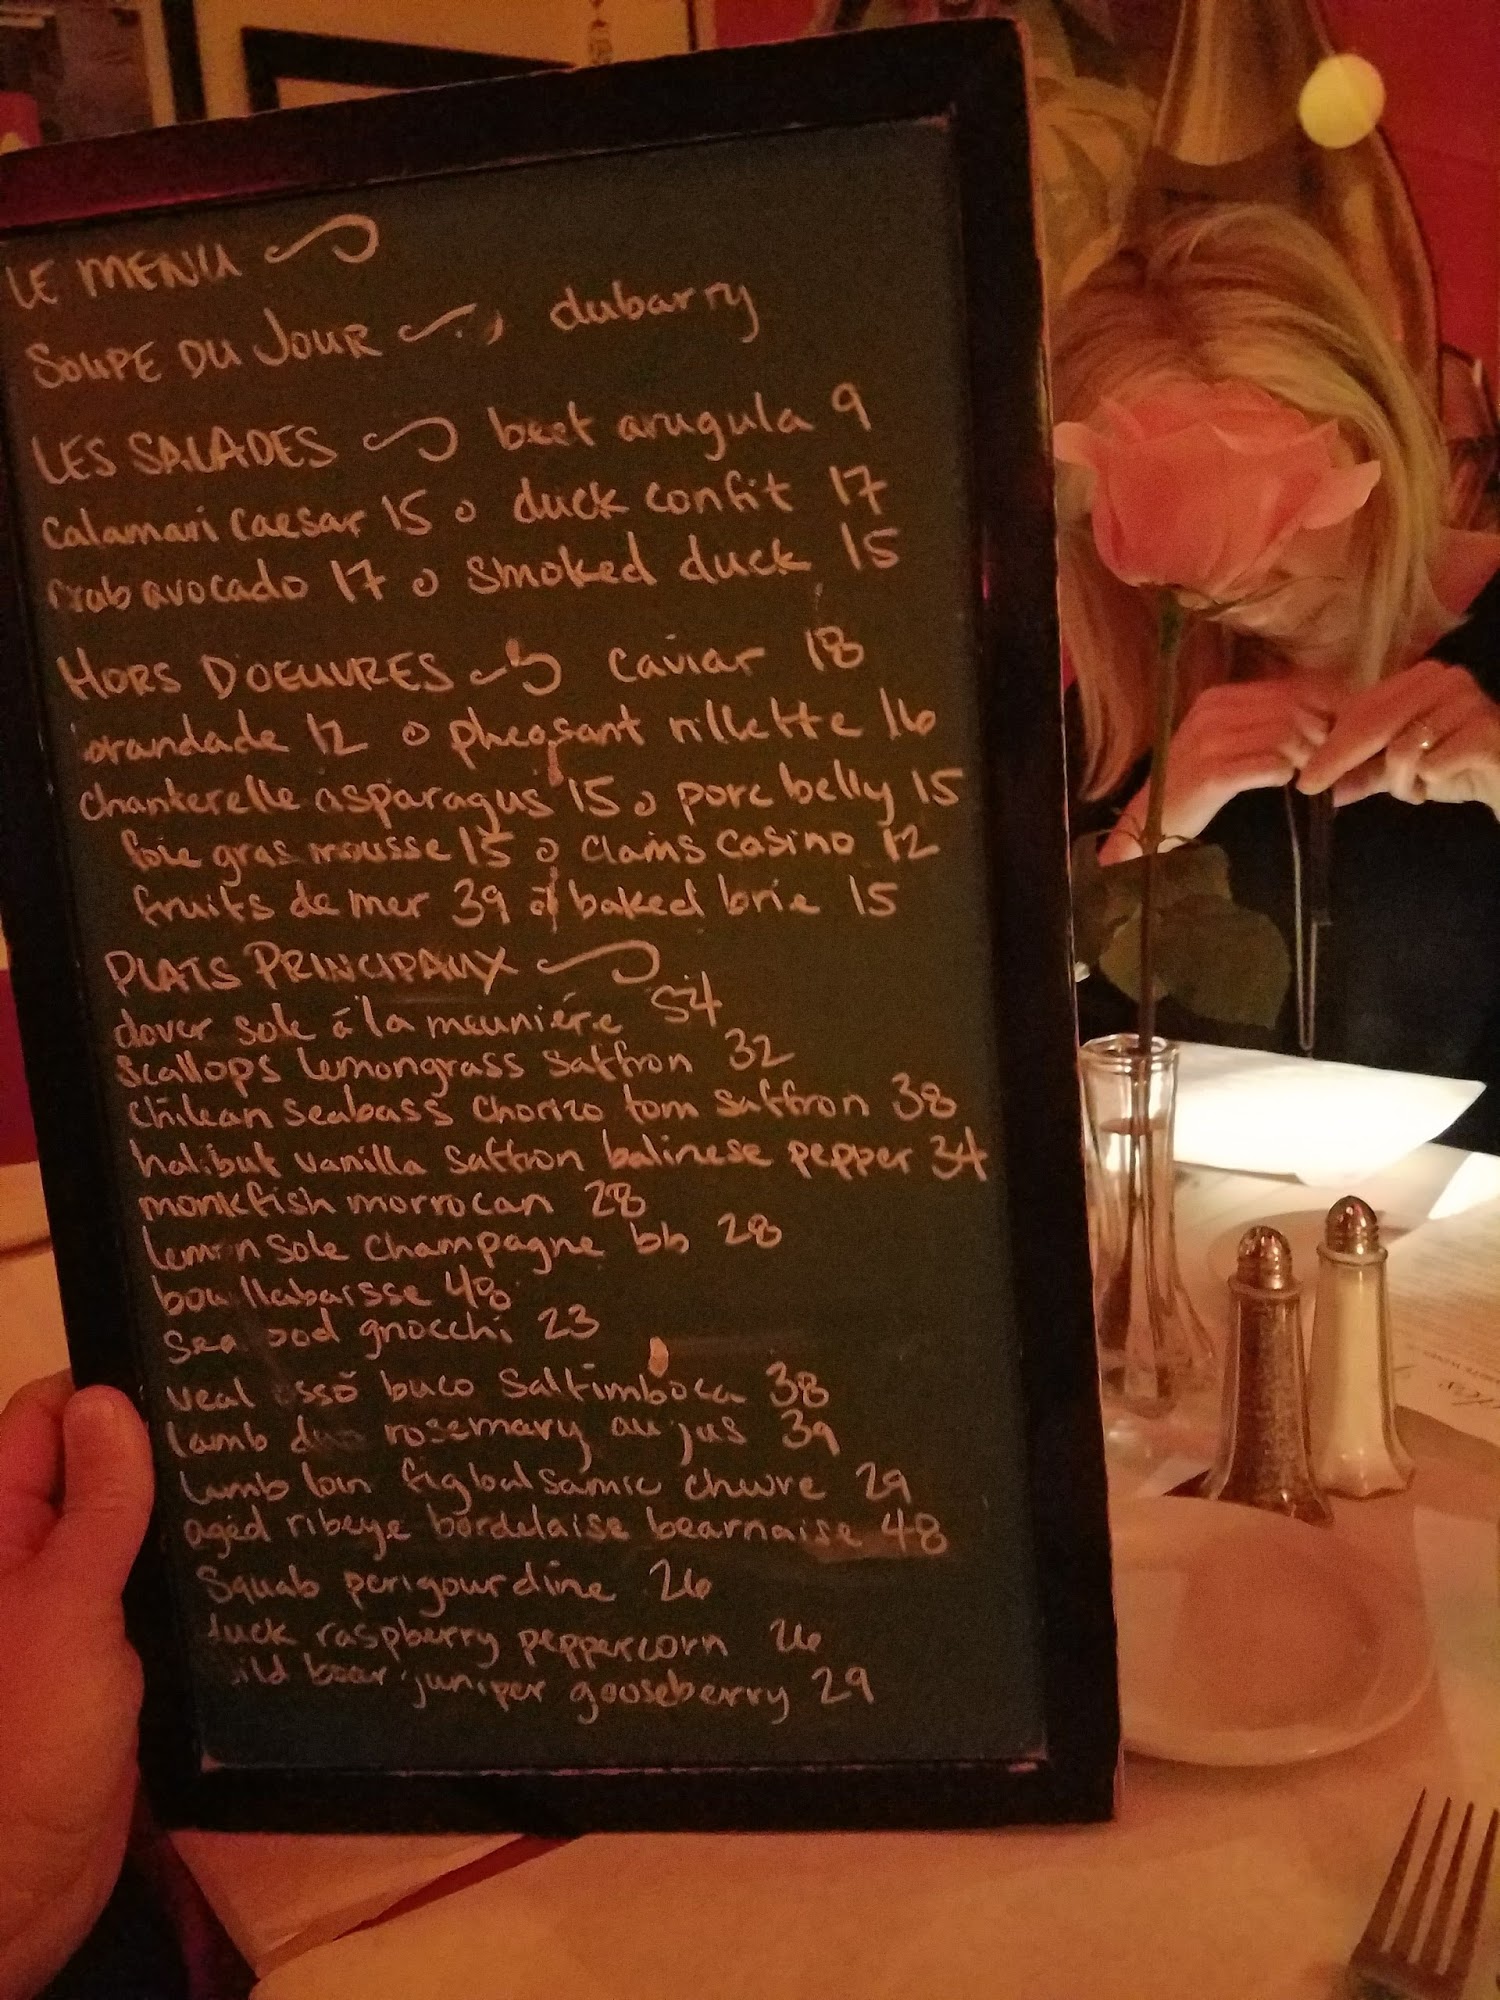 LE MENU
SOUPE DU JOUR dubarry
LES SALADES beet arugula 9
calamari caesar 15 o duck confit 17
crab avocado 17 o smoked duck 15
HORS D'OEUVRES caviar 18
brandade 12 o pheasant rillette 16
chanterelle asparagus 15 o porc belly 15
foie gras mousse 15 o clams casino 12
fruits de mer 39 o baked brie 15
PLATS PRINCIPAUX
dover sole á la meuniére 54
scallops lemongrass saffron 32
chilean seabass chorizo tom saffron 38
halibut vanilla saffron balinese pepper 34
monkfish morrocan 28
lemon sole champagne bb 28
bouillabaisse 48
seafood gnocchi 23
veal osso buco saltimboca 38
lamb duo rosemary au jus 39
lamb loin fig balsamic chevre 29
aged ribeye bordelaise bearnaise 48
squab perigourdine 26
duck raspberry peppercorn 26
wild boar juniper gooseberry 29